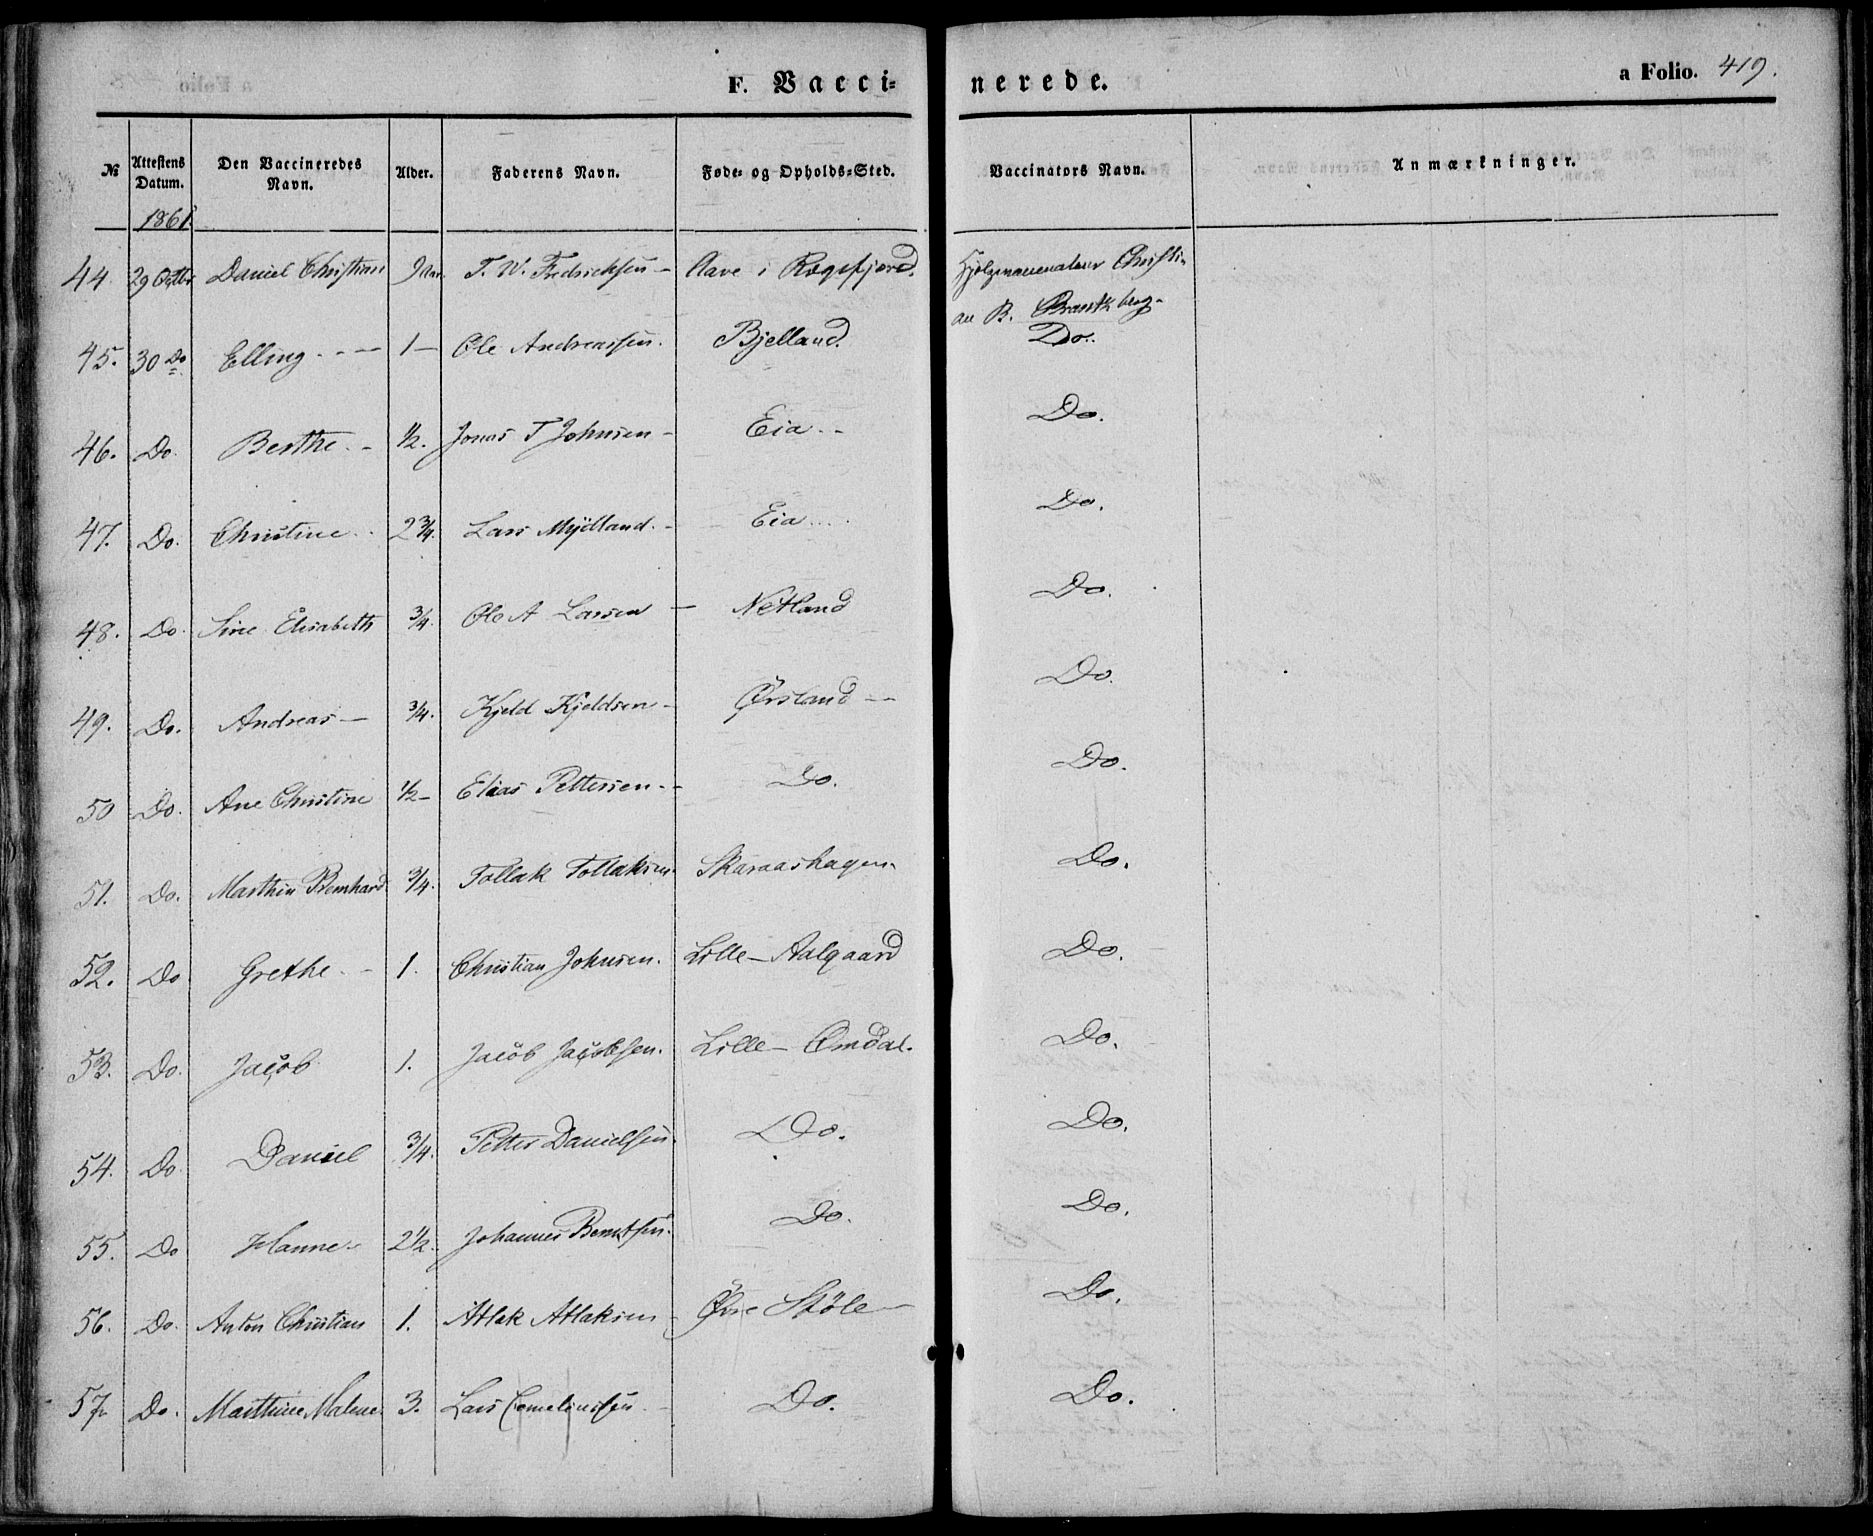 F. Vacci-
nerede.
a Folio. 419.
№ Attestens Datum. Den Vaccineredes Navn. Alder. Faderens Navn. Føde- og Opholds-Sted. Vaccinators Navn. Anmærkninger.
1861.
44. 29 Octbr Daniel Christian 9 Aar. T. W. Fredricksen – Aave i Rægefjord. Hjelpevaccinateur Christi-
an B. Brantzberg
45. 30 Do Elling 1 – Ole Andreassen. Bjelland. Do.
46. Do. Berthe. – 1/2. Jonas T Johnsen – Eia – – Do.
47. Do. Christine. 2 3/4. Lars Mydland. – Eia Do.
48. Do. Sine Elisabeth 3/4. Ole A Larsen – Netland Do.
49. Do. Andreas – 3/4. Kjeld Kjeldsen – Ørsland – – Do.
50 Do. Ane Christine 1/2 – Elias Pettersen. – Do. Do.
51. Do. Marthin Bernhard 3/4. Tollak Tollaksen. Skaraashagen. Do.
52. Do Grethe. – 1. Christian Johnsen. Lille – Aalgaard Do.
53. Do. Jacob 1. Jacob Jacobsen. Lille – Omdal. Do.
54. Do Daniel 3/4. Petter Danielsen. Do. Do.
55. Do Hanne 2 1/2. Johannes Berntsen. Do. Do.
56. Do. Anton Christian 1. Atlak Atlaksen Øvre Støle – Do.
57. Do. Marthine Malene 3. Lars Corneliussen – Do. Do.